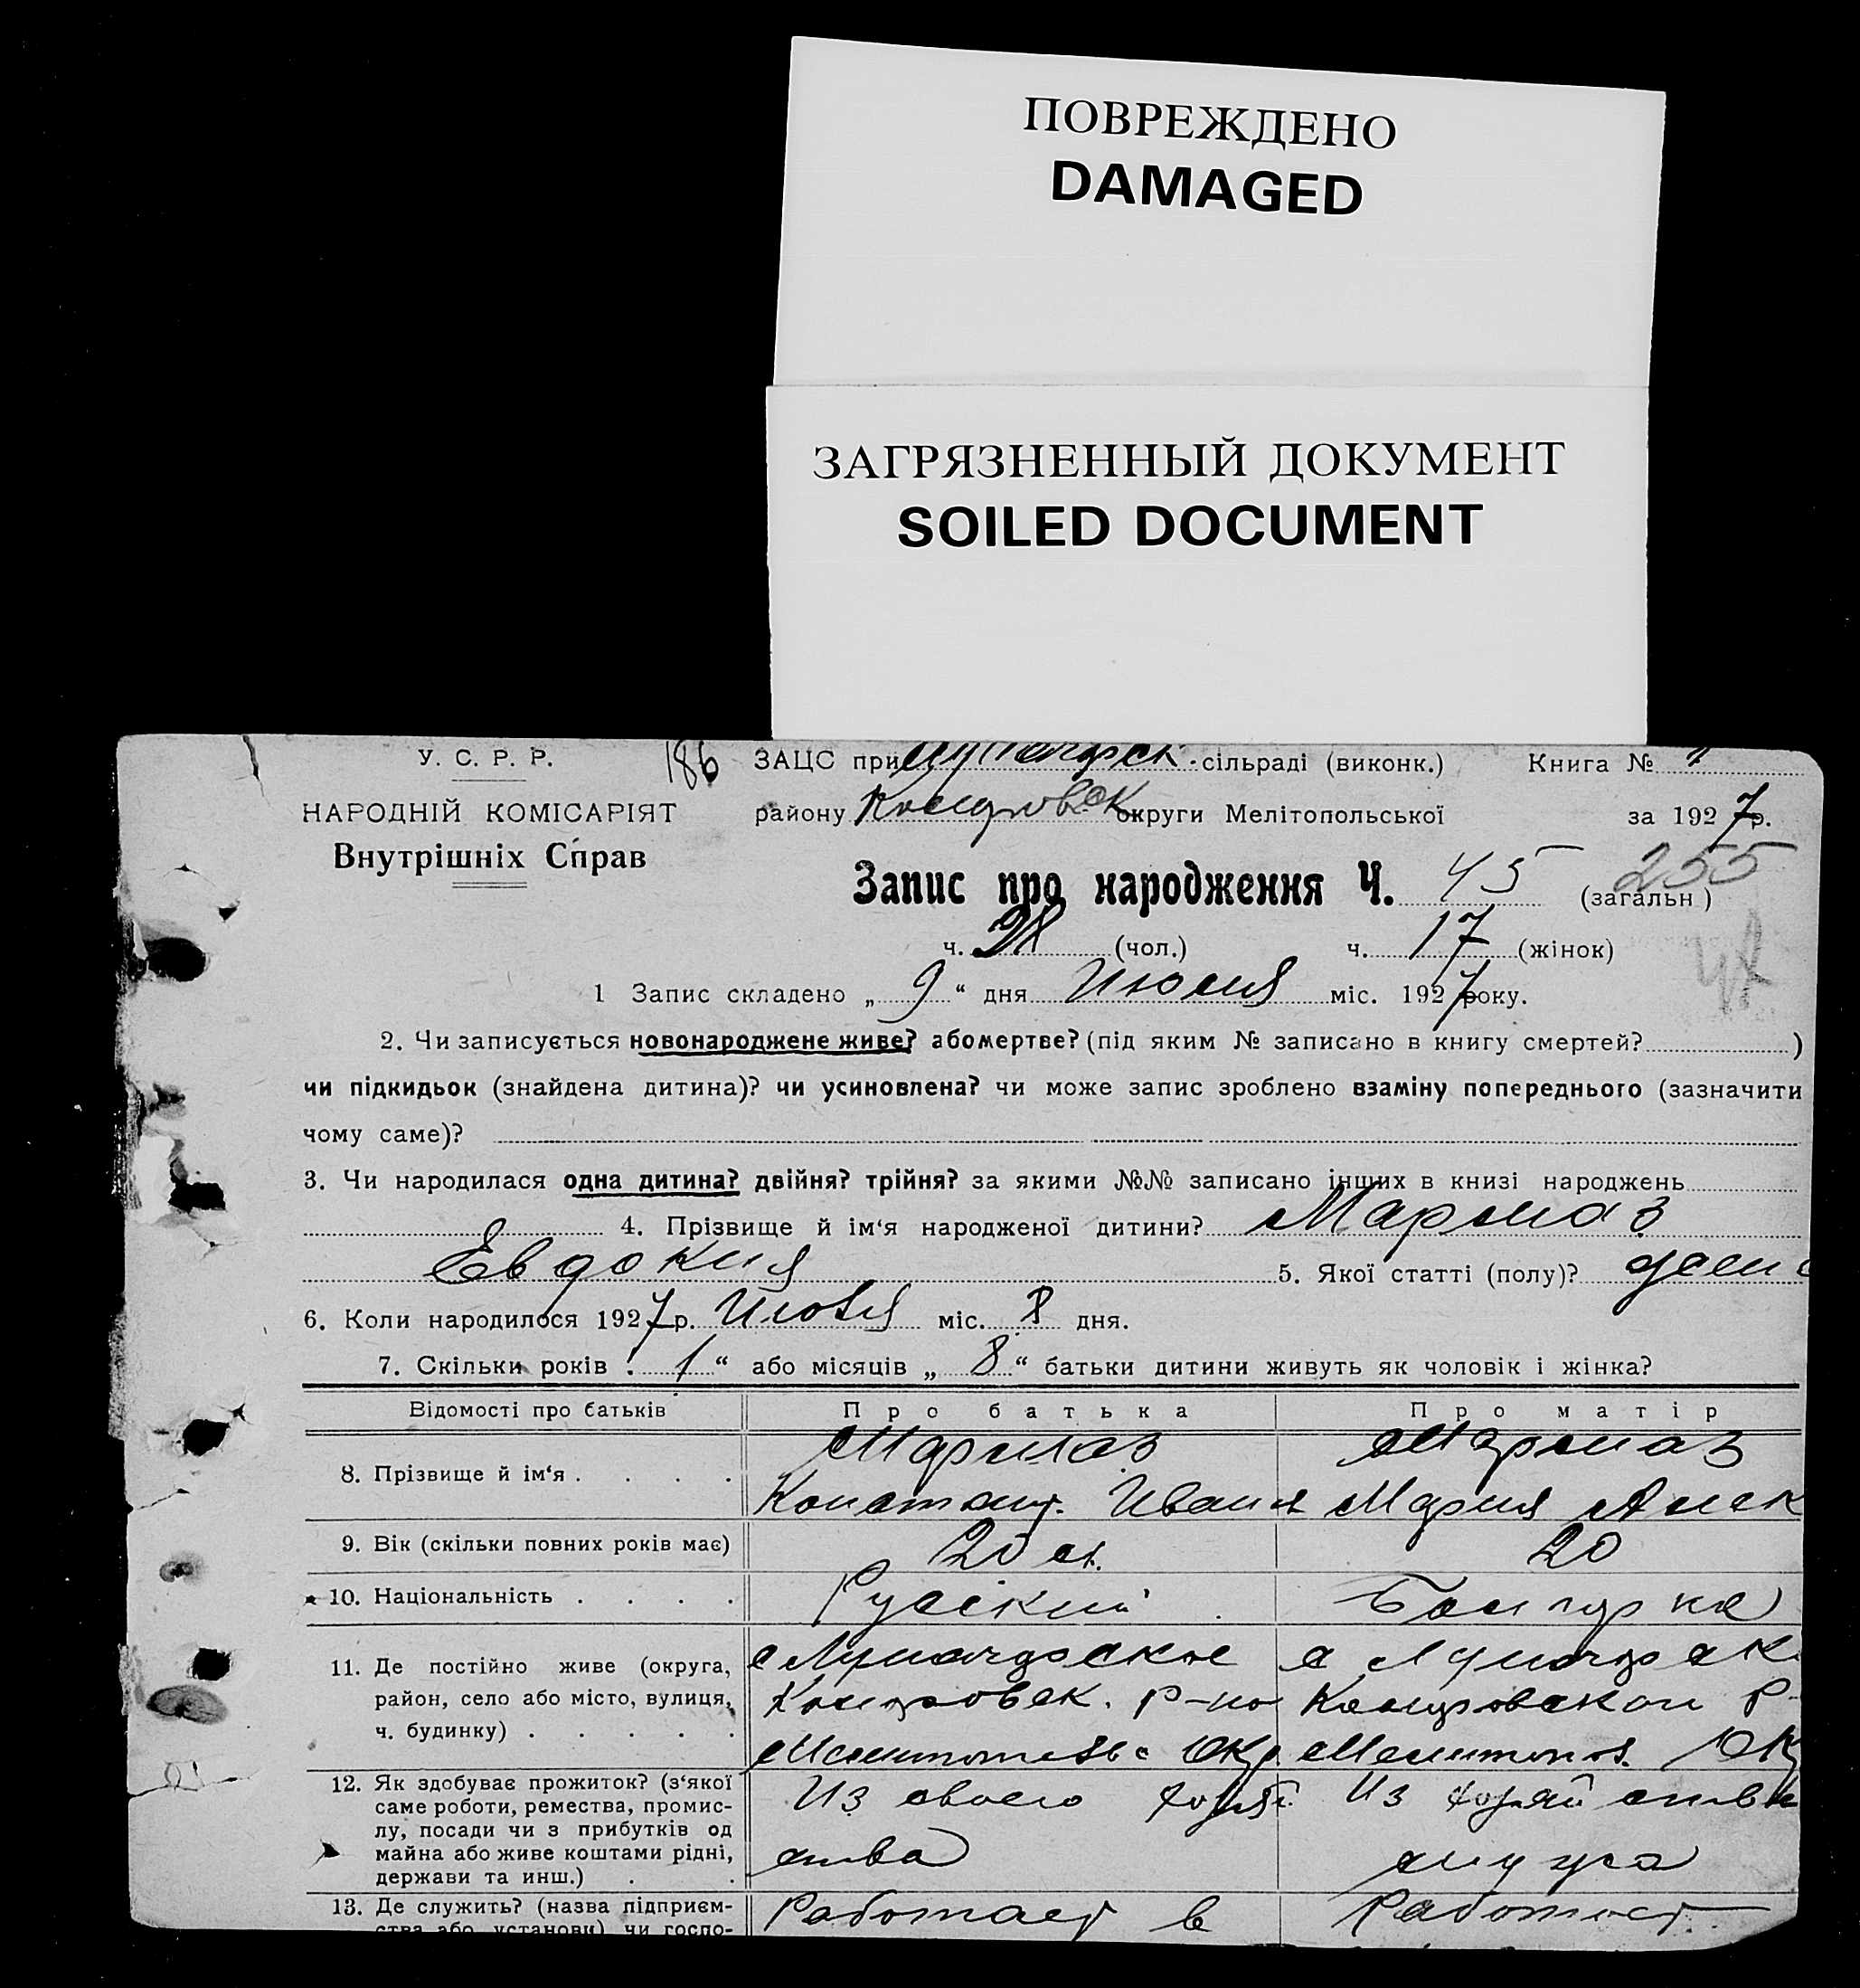 ПОВРЕЖДЕНО
DAMAGED
ЗАГРЯЗНЕННЫЙ ДОКУМЕНТ
SOILED DOCUMENT
У. С. Р. Р. 186 ЗАЦС при сільраді (виконк.) Книга №
НАРОДНІЙ КОМІСАРІЯТ району округи Мелітопольської за 1927 р.
Внутрішніх Справ
Запис про народження Ч. 45 (загальн) 255
ч. 28 (чол.) ч. 17 (жінок)
1 Запис складено „ 9 “ дня Июля міс. 1927 року.
2. Чи записується новонароджене живе? або мертве? (під яким № записано в книгу смертей? )
чи підкидьок (знайдена дитина)? чи усиновлена? чи може запис зроблено взаміну попереднього (зазначити
чому саме)?
3. Чи народилася одна дитина? двійня? трійня? за якими №№ записано інших в книзі народжень
4. Прізвище й ім‘я народженої дитини? Мармаз
Евдокия 5. Якої статті (полу)?
6. Коли народилося 1927 р. Июля міс. 8 дня.
7. Скільки років 1 “ або місяців „ 8 “ батьки дитини живуть як чоловік і жінка?
Відомості про батьків Про батька Про матір
8. Прізвище й ім‘я . . . . Мармаз Мармаз
Констант. Иван Мария Алек
9. Вік (скільки повних років має) 20 л. 20
10. Національність . . . . Русский Болгарка
11. Де постійно живе (округа,
район, село або місто, вулиця,
ч. будинку) . . . . .
Р-на Р-
Мелитопольс Окр. Мелитопол. Ок
12. Як здобуває прожиток? (з‘якої
саме роботи, ремества, промис-
лу, посади чи з прибутків од
майна або живе коштами рідні,
держави та инш.) . .
Из своего хозяй Из хозяйства
ства мужа
13. Де служить? (назва підприєм- Работает в Работает
ства або установи) чи госпо-